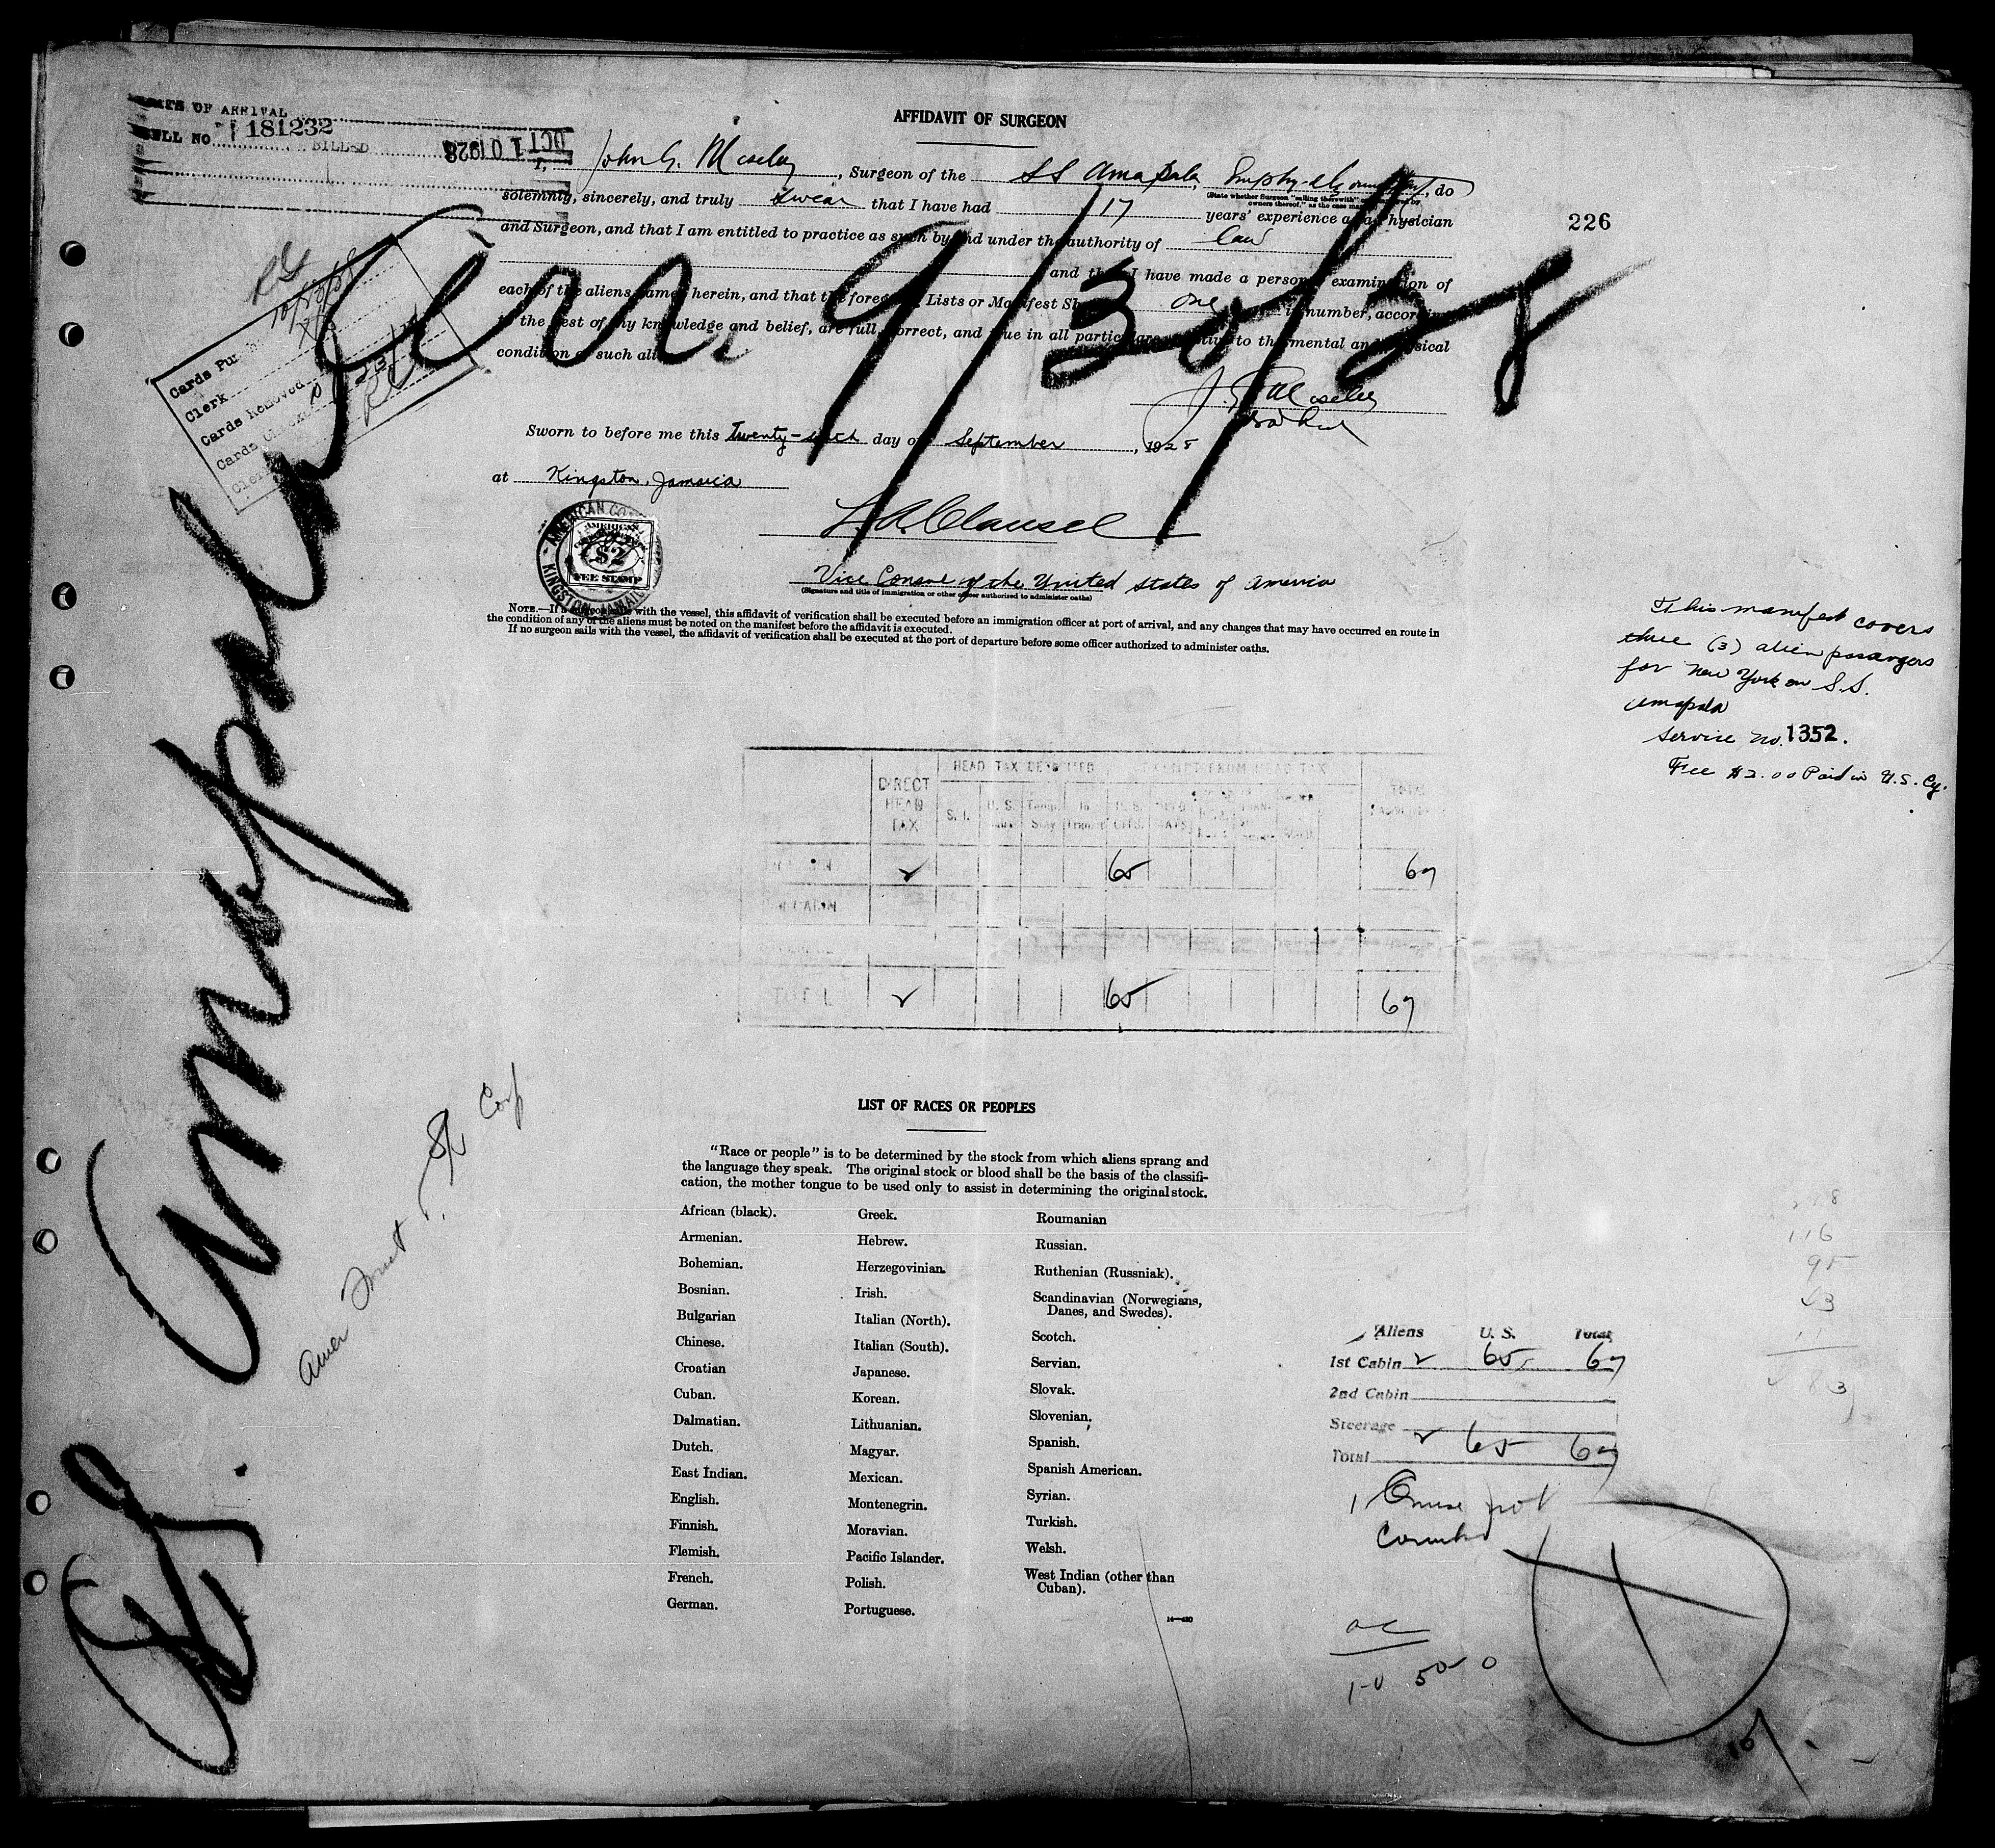 DATE OF ARRIVAL
BILL NO. 181232
BILLED
OCT 10 1928
AFFIDAVIT OF SURGEON
226
I, John G. Moseley, Surgeon of the SS Amapala, do
(State whether Surgeon "sailing therewith" or "employed by owners thereof," as the case may be)
solemnly, sincerely, and truly swear that I have had 17 years' experience as a Physician
and Surgeon, and that I am entitled to practice as such by and under the authority of law
and that I have made a personal examination of
each of the aliens named herein, and that the foregoing Lists or Manifest Sheets, one in number, according
to the best of my knowledge and belief, are full, correct, and true in all particulars relative to the mental and physical
condition of such aliens.
J. G. Moseley
Sworn to before me this twenty-sixth day of September, 1928
at Kingston, Jamaica
L. A. Clausel
Vice Consul of the United States of America
(Signature and title of immigration or other officer authorized to administer oaths)
AMERICAN
KINGSTON, JAMAICA
AMERICAN
$2
FEE STAMP
NOTE.—If a surgeon sails with the vessel, this affidavit of verification shall be executed before an immigration officer at port of arrival, and any changes that may have occurred en route in
the condition of any of the aliens must be noted on the manifest before the affidavit is executed.
If no surgeon sails with the vessel, the affidavit of verification shall be executed at the port of departure before some officer authorized to administer oaths.
Cards Punched
Clerk
Cards Removed
Clerk
SS. Amapala
Arr. 9/30/28
Amer Fruit & SS Corp
This manifest covers
three (3) alien passengers
for New York on S.S.
Amapala
Service No. 1352.
Fee $2.00 Paid in U.S. Cy.
DIRECT HEAD TAX
HEAD TAX DEPOSITED
EXEMPT FROM HEAD TAX
TOTAL
S. I.
U. S.
Temp. Stay
In Transit
U. S. CITS.
2 65 67
TOTAL 2 65 67
LIST OF RACES OR PEOPLES
"Race or people" is to be determined by the stock from which aliens sprang and
the language they speak. The original stock or blood shall be the basis of the classifi-
cation, the mother tongue to be used only to assist in determining the original stock.
African (black).
Armenian.
Bohemian.
Bosnian.
Bulgarian
Chinese.
Croatian
Cuban.
Dalmatian.
Dutch.
East Indian.
English.
Finnish.
Flemish.
French.
German.
Greek.
Hebrew.
Herzegovinian.
Irish.
Italian (North).
Italian (South).
Japanese.
Korean.
Lithuanian.
Magyar.
Mexican.
Montenegrin.
Moravian.
Pacific Islander.
Polish.
Portuguese.
Roumanian
Russian.
Ruthenian (Russniak).
Scandinavian (Norwegians,
Danes, and Swedes).
Scotch.
Servian.
Slovak.
Slovenian.
Spanish.
Spanish American.
Syrian.
Turkish.
Welsh.
West Indian (other than
Cuban).
116
95
Aliens U. S. Total
1st Cabin 2 65 67
2nd Cabin
Steerage
Total 2 65 67
not
counted